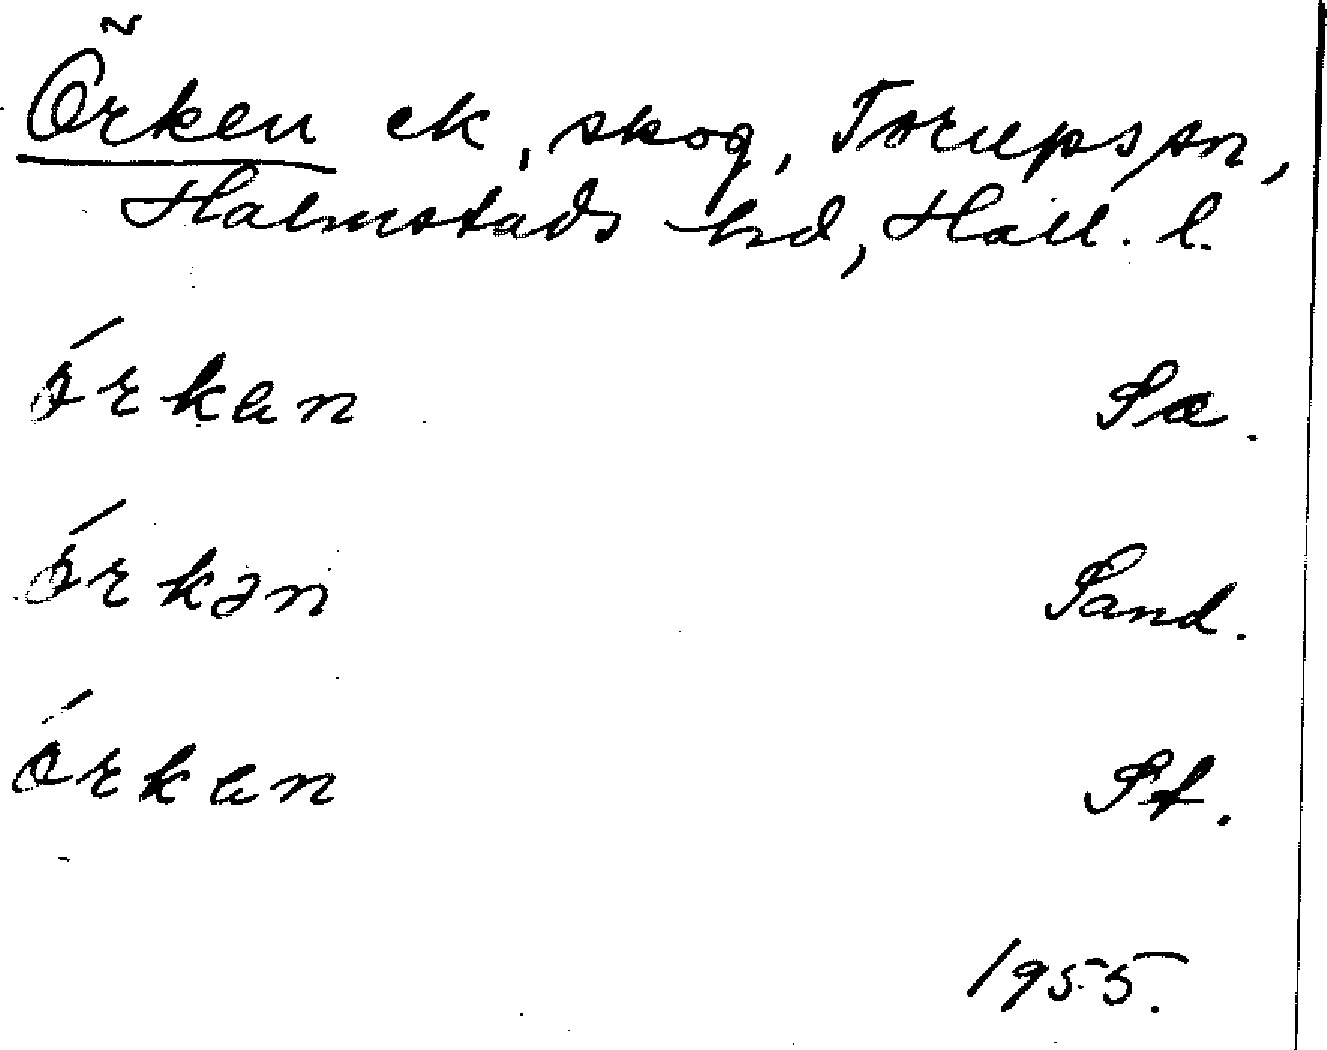 Örken ek, skog, Torups sn,
Halmstads hd, Hall. l.
Örken Sæ.
Örkən Sand.
Örken Sf.
1955.